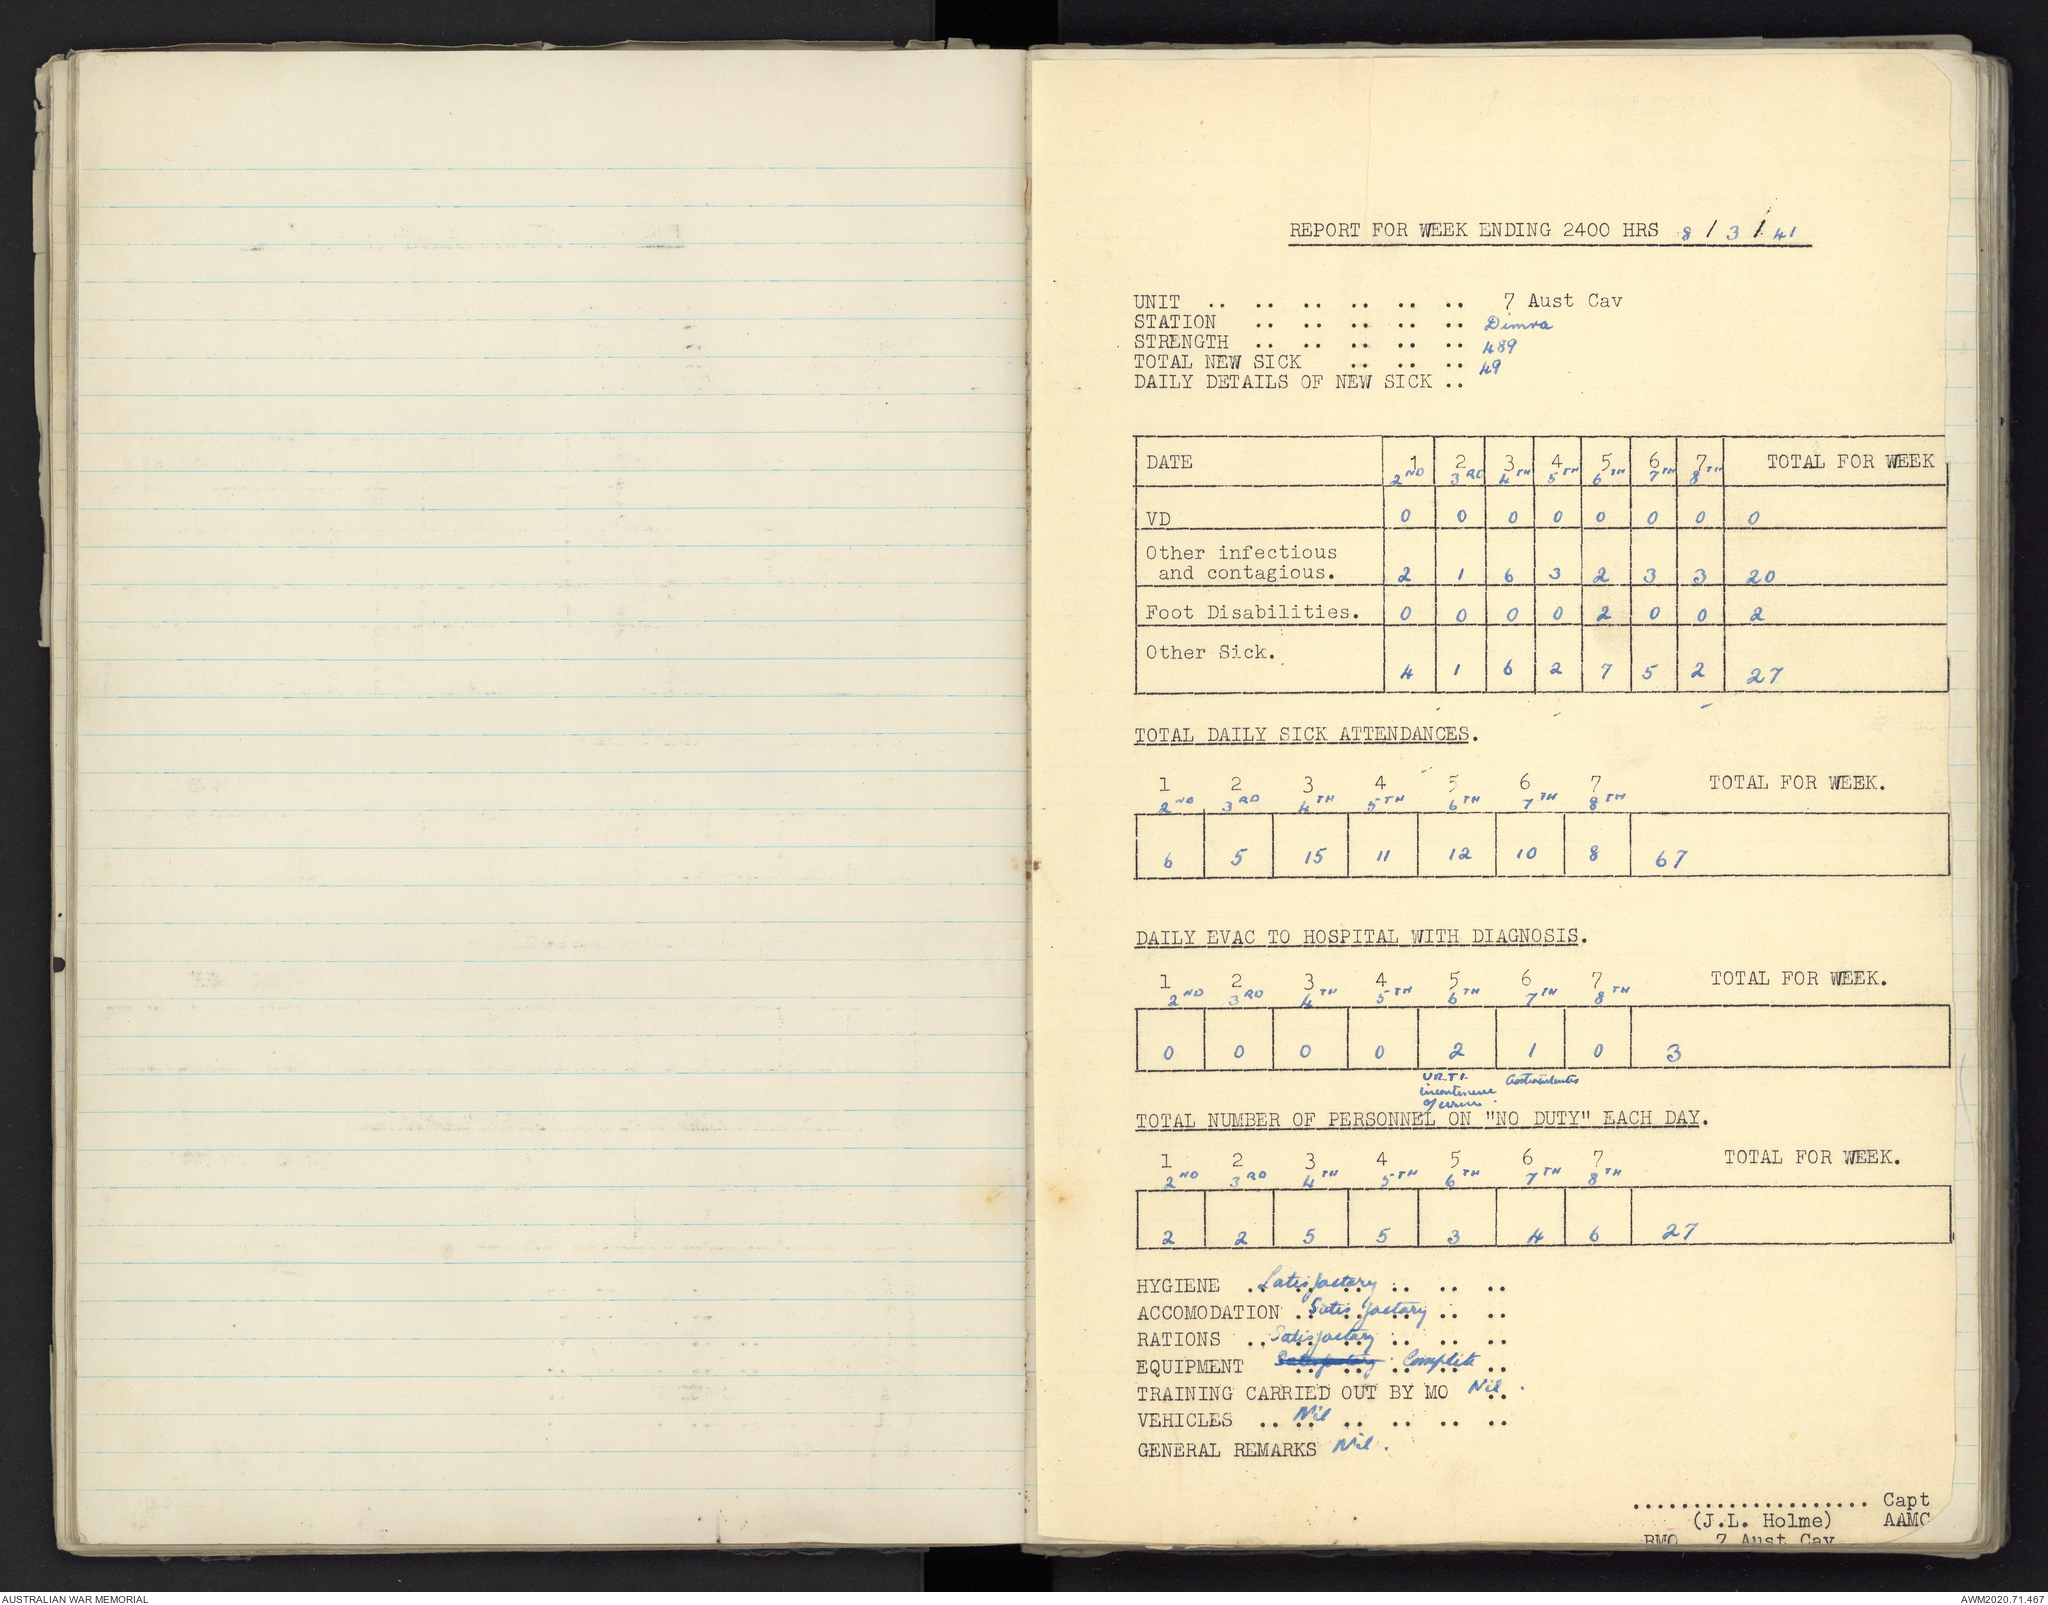 REPORT FOR WEEK ENDING 2400 HRS 8 / 3 / 41
UNIT .. .. .. .. .. .. 7 Aust Cav
STATION .. .. .. .. .. Dimra
STRENGTH .. .. .. .. .. 489
TOTAL NEW SICK .. .. .. 49
DAILY DETAILS OF NEW SICK ..
DATE 1 2 3 4 5 6 7 TOTAL FOR WEEK
2ND 3RD 4TH 5TH 6TH 7TH 8TH
VD 0 0 0 0 0 0 0 0
Other infectious
and contagious. 2 1 6 3 2 3 3 20
Foot Disabilities. 0 0 0 0 2 0 0 2
Other Sick.
4 1 6 2 7 5 2 27
TOTAL DAILY SICK ATTENDANCES.
1 2 3 4 5 6 7 TOTAL FOR WEEK.
2ND 3RD 4TH 5TH 6TH 7TH 8TH
6 5 15 11 12 10 8 67
DAILY EVAC TO HOSPITAL WITH DIAGNOSIS.
1 2 3 4 5 6 7 TOTAL FOR WEEK.
2ND 3RD 4TH 5TH 6TH 7TH 8TH
0 0 0 0 2 1 0 3
U.R.T.I. Gastroenteritis
incontinence
of urine.
TOTAL NUMBER OF PERSONNEL ON "NO DUTY" EACH DAY.
1 2 3 4 5 6 7 TOTAL FOR WEEK.
2ND 3RD 4TH 5TH 6TH 7TH 8TH
2 2 5 5 3 4 6 27
HYGIENE .. Satisfactory .. .. ..
ACCOMODATION .. Satisfactory .. ..
RATIONS .. Satisfactory .. .. ..
EQUIPMENT Satisfactory Complete ..
TRAINING CARRIED OUT BY MO Nil.
VEHICLES .. Nil .. .. .. ..
GENERAL REMARKS Nil.
.................... Capt
(J.L. Holme) AAMC
RMO 7 Aust Cav
AUSTRALIAN WAR MEMORIAL
AWM2020.71.467